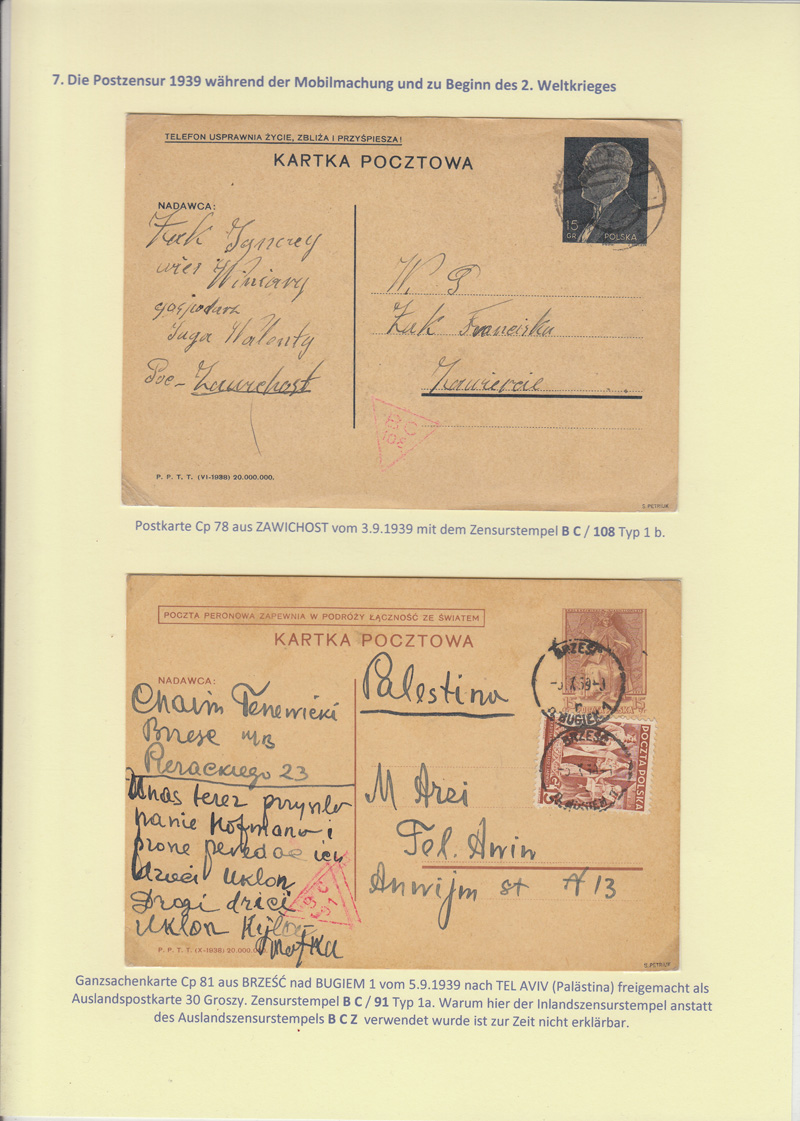 7. Die Postzensur 1939 während der Mobilmachung und zu Beginn des 2. Weltkrieges
TELEFON USPRAWNIA ŻYCIE, ZBLIŻA I PRZYŚPIESZA!
KARTKA POCZTOWA
15 GR
POLSKA
NADAWCA:
Żak Ignacy
wieś Winiary
gospodarz
Walenty
Zawichost
W. P
Żak Franciska
Zawiercie
B C
108
P. P. T. T. (VI-1938) 20.000.000.
S. PETRUK
Postkarte Cp 78 aus ZAWICHOST vom 3.9.1939 mit dem Zensurstempel B C / 108 Typ 1 b.
POCZTA PERONOWA ZAPEWNIA W PODRÓŻY ŁĄCZNOŚĆ ZE ŚWIATEM
KARTKA POCZTOWA
BRZEŚĆ
BUGIEM 1
BRZEŚĆ
POCZTA POLSKA
NADAWCA:
Chaim
Pierackiego 23
Palestina
U nas teraz
panie Hofmano i
dzieci Uklon
Drogi dzieci
Uklon
Matka
M Arei
Tel. Awiw
st 13
B C
91
P. P. T. T. (X-1938) 20.000.000.
S. PETRUK
Ganzsachenkarte Cp 81 aus BRZEŚĆ nad BUGIEM 1 vom 5.9.1939 nach TEL AVIV (Palästina) freigemacht als
Auslandspostkarte 30 Groszy. Zensurstempel B C / 91 Typ 1a. Warum hier der Inlandszensurstempel anstatt
des Auslandszensurstempels B C Z verwendet wurde ist zur Zeit nicht erklärbar.